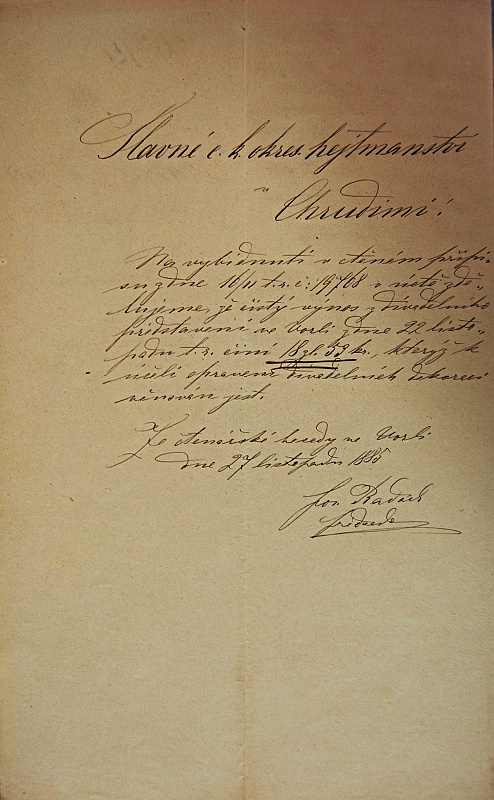 Slavné c. k. okres. hejtmanství
v
Chrudimi!
Na vybídnutí v ctěném přípi-
su z dne 16/11 t. r. č: 19768 v úctě zdě-
lujeme, že čistý výnos z divadelního
představení ve Vorli z dne 22 listo-
padu t. r. činí 18 zl. 53 kr., kterýž k
účeli opravení divadelních dekorací
věnován jest.
Ze čtenářské besedy ve Vorli
dne 27 listopadu 1885
Jos. Radach